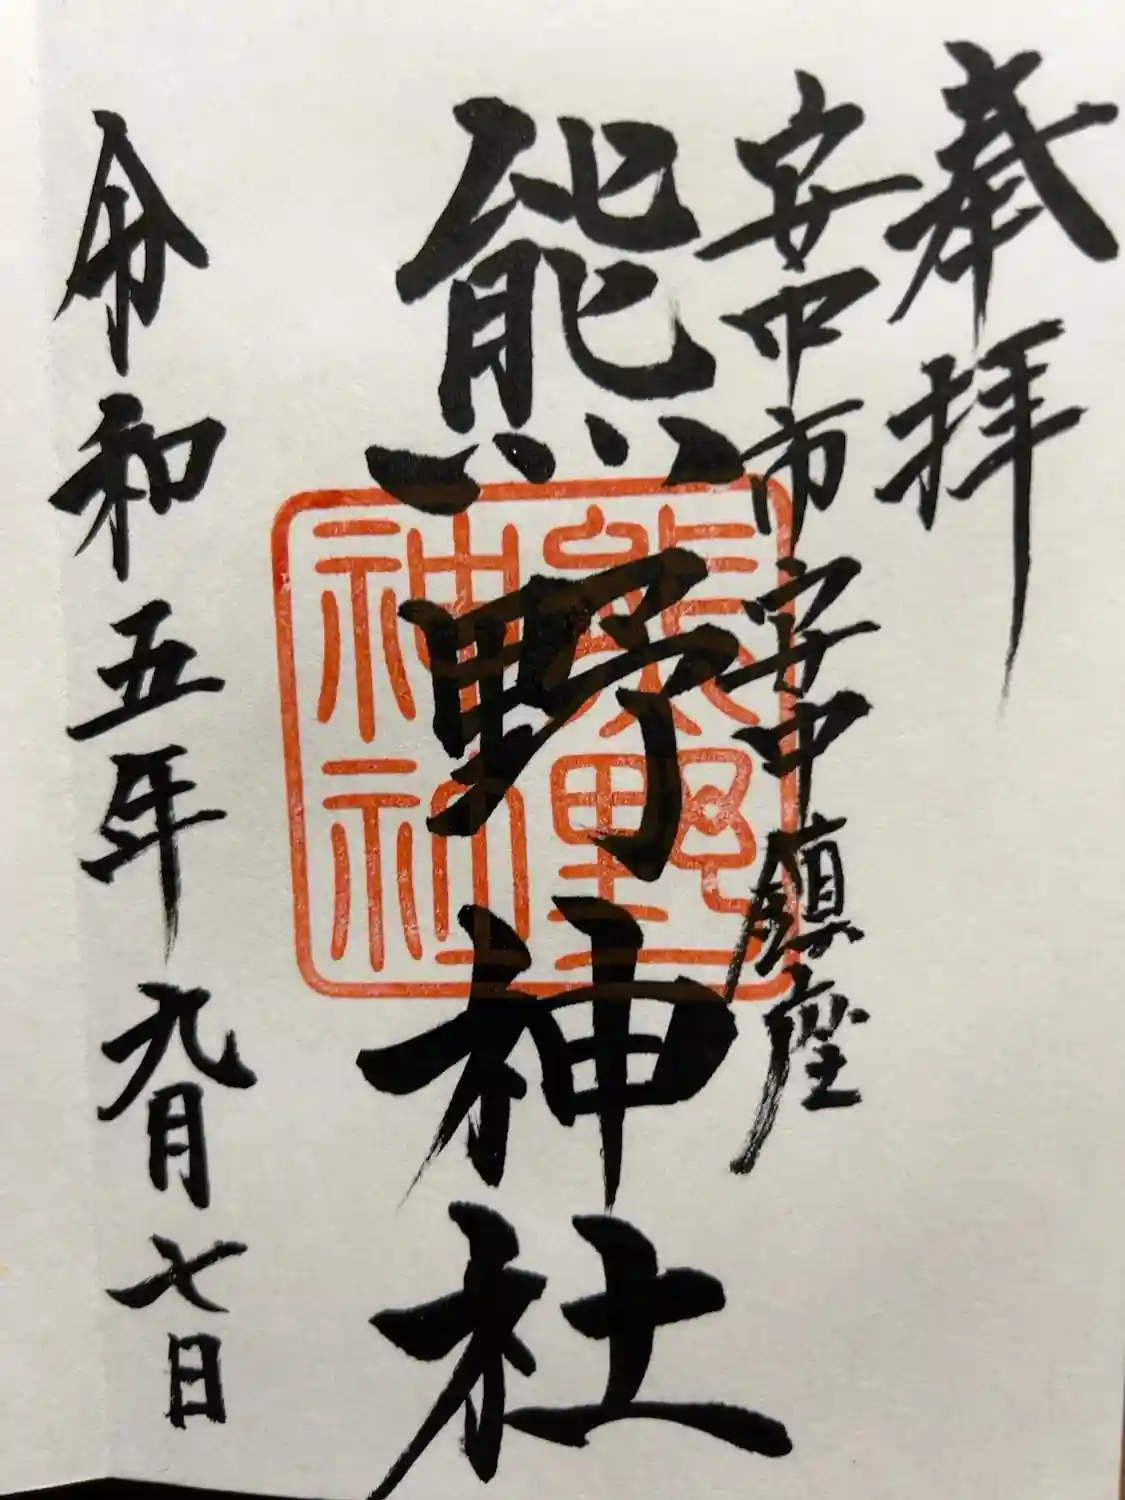 奉拝
安中市安中鎮座
熊野神社
熊野
神社
令和五年九月七日